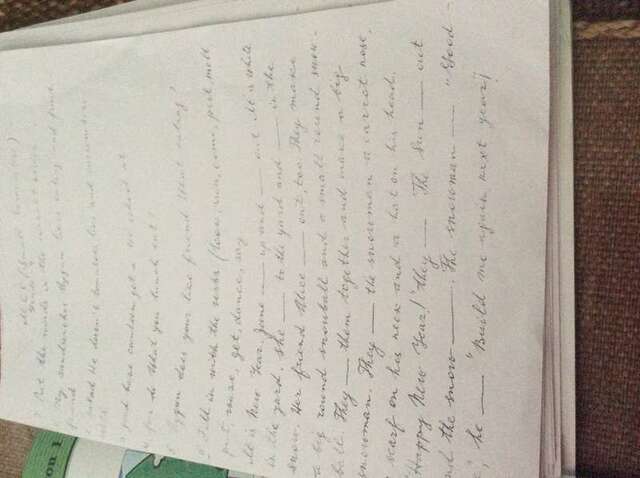 on 1
(Small
I Put the words in the correct order.
My sandwiches Aygun likes eating and fruit.
friend
2 salad He doesn't tomatoes like and cucumbers
3 good have canteen got a We school at
4 for do What you lunch eat?
5 Aygun does your like friend What eating?
II Fill in with the verbs. (look, run, come, put, melt
put, wave, get, dance, say
It is New Year. Jane — up and — out. It is white
in the yard. She — to the yard and — in the
snow. Her friend Alice — out, too. They make
a big round snowball and a small round snow-
ball. They — them together and make a big
snowman. They — the snowman a carrot nose,
a scarf on his neck and a hat on his head.
"Happy New Year!" they — The Sun — out
and the snow —. The snowman — "Good-
e", he — "Build me again next year!"